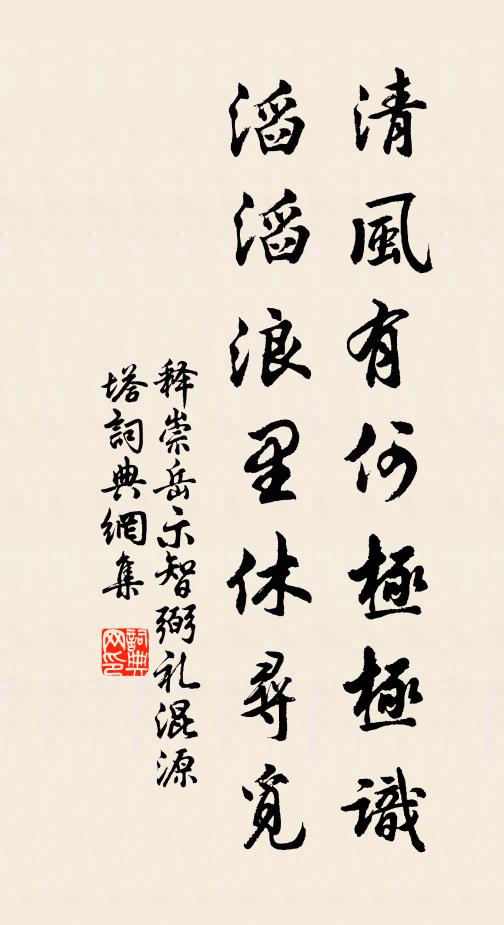 清風有何極極識
滔滔浪里休尋覓
释崇岳示智弼礼混源
塔詞典網集
詞典網印